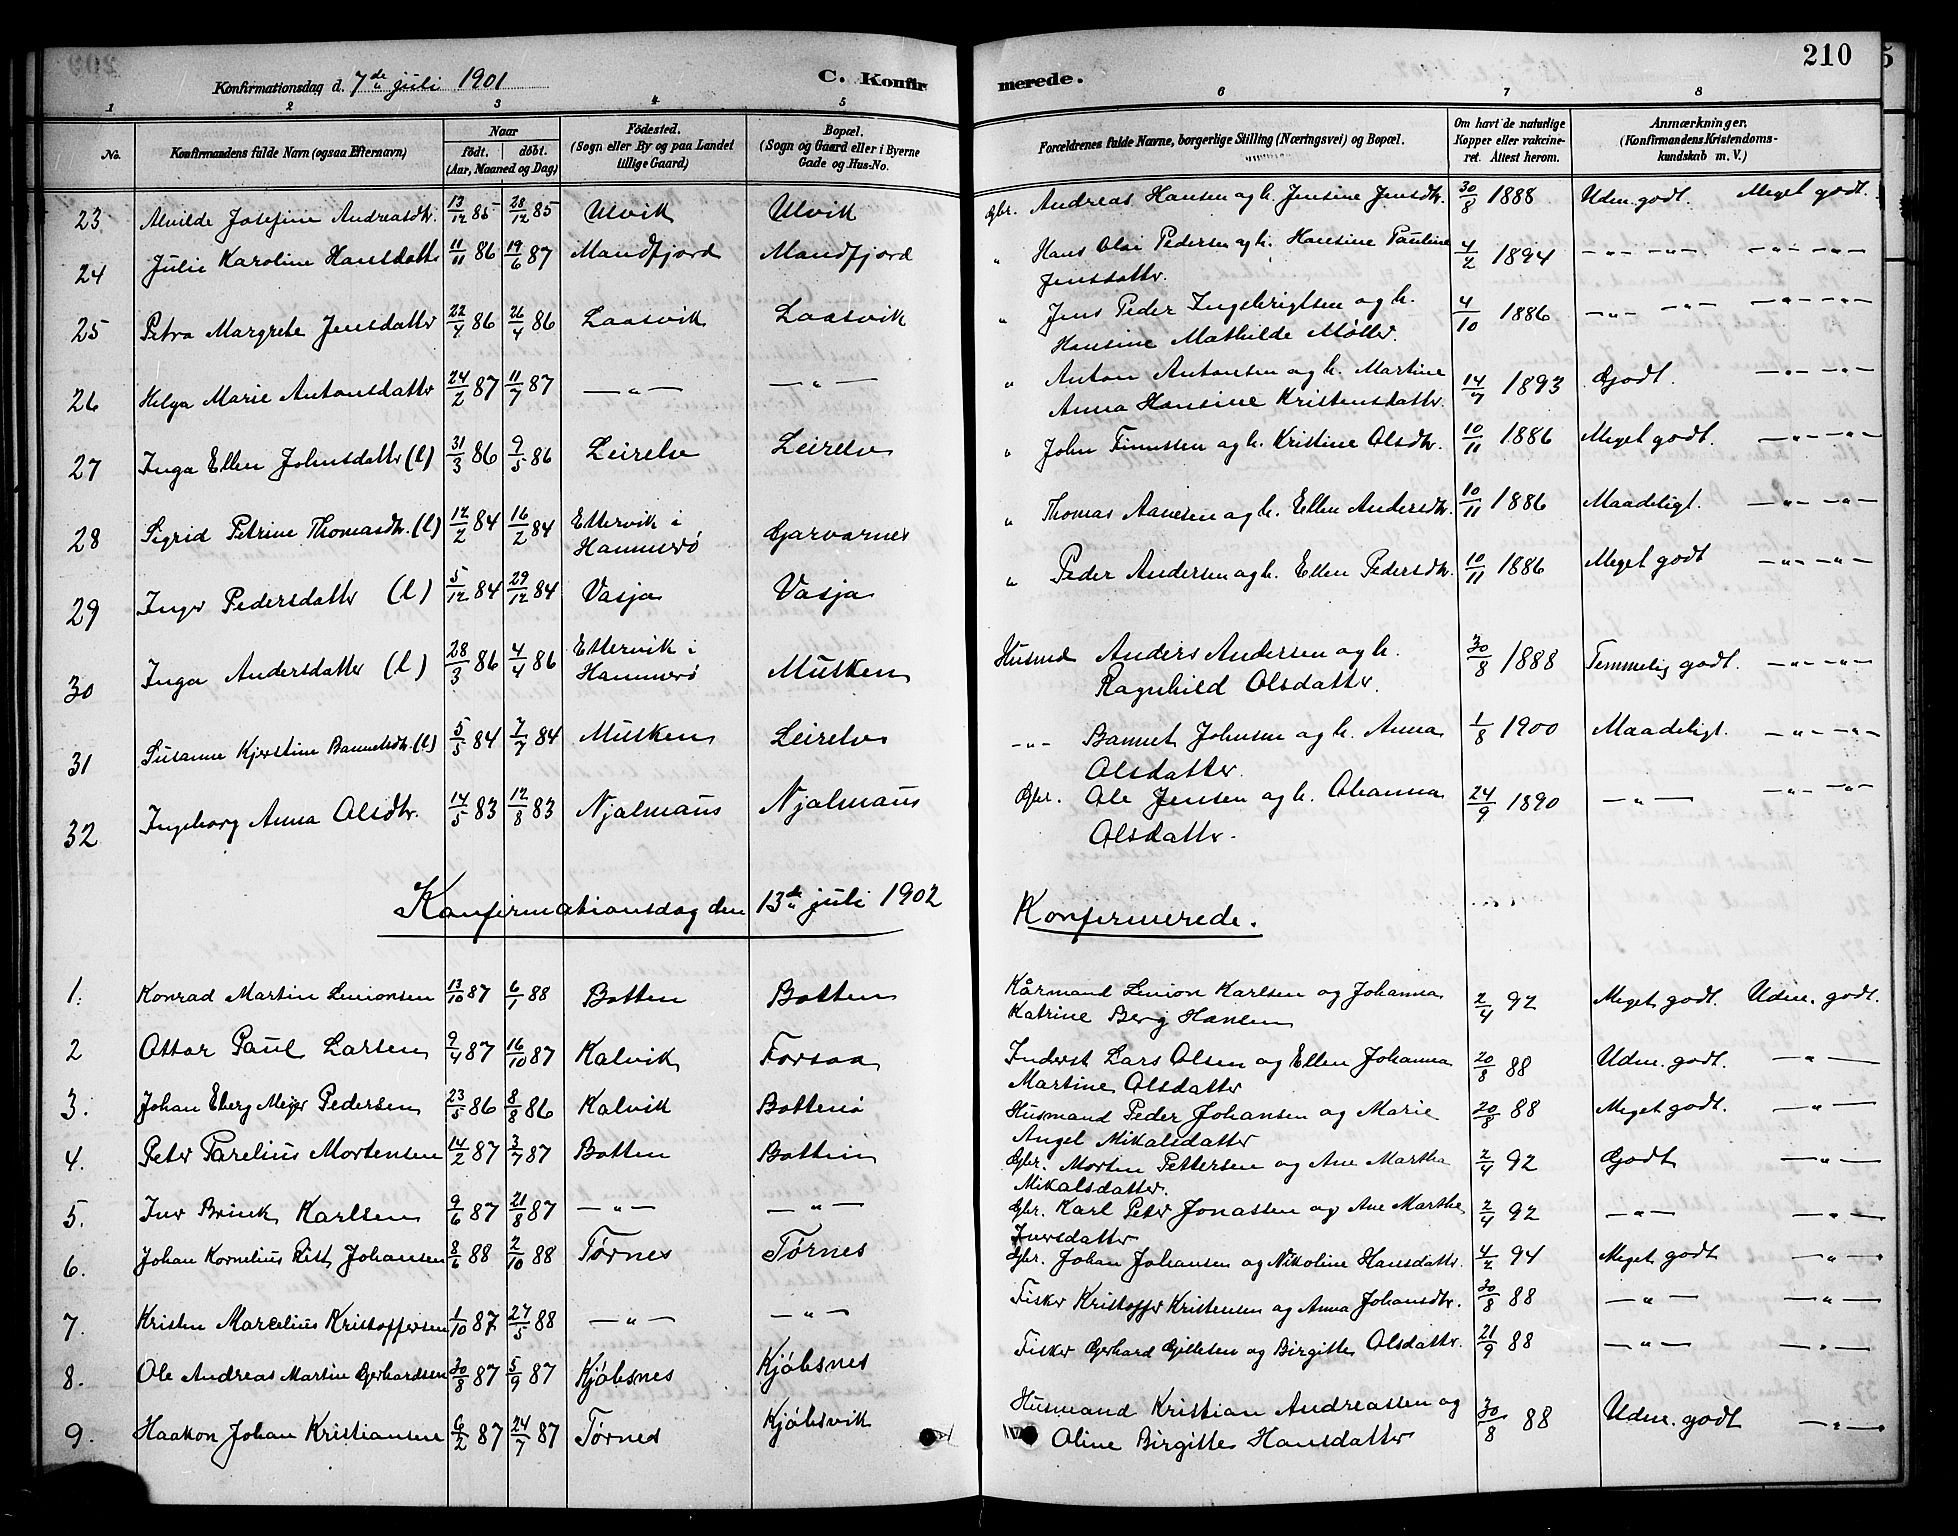 210
Konfirmationsdag d. 7de juli 1901 C. Konfirmerede.
1 2 3 4 5 6 7 8
No. Konfirmandens fulde Navn (ogsaa Efternavn) Naar født. døbt. (Aar, Maaned og Dag) Födested. (Sogn eller By og paa Landet tillige Gaard) Bopæl. (Sogn og Gaard eller i Byerne Gade og Hus-No. Forældrenes fulde Navne, borgerlige Stilling (Næringsvei) og Bopæl. Om havt de naturlige Kopper eller vakcineret. Attest herom. Anmærkninger. (Konfirmandens Kristendomskundskab m. V.)
23 Alvilde Josefine Andreasdtr. 13/12 85 28/12 85 Ulvik Ulvik Gbr. Andreas Hansen og h. Jensine Jensdtr. 30/8 1888 Udm. godt. Meget godt.
24 Julie Karoline Hansdattr 11/11 86 19/6 87 Mandfjord Mandfjord " Hans Olai Pedersen og h. Hansine Pauline Jensdattr. 4/2 1894 -"- -"- -"- -"-
25 Petra Margrete Jensdattr 22/4 86 26/4 86 Laasvik Laasvik " Jens Peder Ingebrigtsen og h. Hansine Mathilde Møller. 4/10 1886 -"- -"- -"- -"-
26 Helga Marie Antonsdattr 24/2 87 11/7 87 -"- -"- " Anton Antonsen og h. Martine Anna Hansine Kristensdattr. 14/7 1893 Godt. -"- -"-
27 Inga Ellen Johnsdattr (l) 31/3 86 9/5 86 Leirelv Leirelv " John Finnssen og h. Kristine Olsdtr. 10/11 1886 Meget godt. -"- -"-
28 Sigrid Petrine Thomasdtr. (l) 12/2 84 16/2 84 Ettervik i Hammerø Gjarvarnes " Thomas Aanesen og h. Ellen Andersdtr. 10/11 1886 Maadeligt. -"- -"-
29 Inger Pedersdattr (l) 5/12 84 29/12 84 Vasja Vasja " Peder Andersen og h. Ellen Pedersdtr. 10/11 1886 Meget godt -"- -"-
30 Inga Andersdatter (l) 28/3 86 4/4 86 Ettervik i Hammerø Musken Husmd Anders Andersen og h. Ragnhild Olsdatter. 30/8 1888 Temmelig godt. -"- -"-
31 Susanne Kjerstine Bannetsdtr. (l) 5/5 84 7/7 84 Musken Leirelv -"- Bannet Johnsen og h. Anna Olsdatter. 1/8 1900 Maadeligt. -"- -"-
32 Ingeborg Anna Olsdtr. 14/5 83 12/8 83 Njalmaus Njalmaus Gbr. Ole Jensen og h. Ohanna Olsdattr. 24/9 1890 -"- -"- -"-
Konfirmationsdag den 13de juli 1902 Konfirmerede.
1. Konrad Martin Simonsen 13/10 87 6/1 88 Botten Botten Kårmand Simon Karlsen og Johanna Katrine Berg Hansen 2/4 92 Meget godt. Udm. godt.
2 Ottar Paul Larsen 9/4 87 16/10 87 Kalvik Forsaa Inderst Lars Olsen og Ellen Johanna Martine Olsdatter 20/8 88 Udm. godt. -"-
3. Johan Eberg Meyer Pedersen 23/5 86 8/8 86 Kalvik Botten Husmand Peder Johansen og Marie Angel Mikalsdatter 20/8 88 Meget godt. -"-
4. Peter Parelius Mortensen 14/2 87 3/7 87 Botten Botten Gbr. Morten Pettersen og Ane Martha Mikalsdatter. 2/4 92 Godt -"-
5. Iver Brink Karlsen 9/6 87 21/8 87 -"- -"- Gbr. Karl Peter Jonassen og Ane Marthe Iversdatter 2/4 92 -"- -"-
6. Johan Kornelius Rist Johansen 8/6 88 2/10 88 Tørnes Tørnes Gbr. Johan Johansen og Nikoline Hansdattr. 4/2 94 Meget godt -"-
7. Kristen Marcelius Kristoffersen 1/10 87 27/5 88 -"- -"- Fisker Kristoffer Kristensen og Anna Johansdtr. 30/8 88 -"- -"-
8. Ole Andreas Martin Gerhardsen 30/8 87 5/9 87 Kjöbsnes Kjöbsnes Fisker Gerhard Gillesen og Birgitte Olsdatter. 21/9 88 -"- -"-
9. Haakon Johan Kristiansen 6/2 87 24/7 87 Tørnes Kjöbsvik Husmand Kristian Andreassen og Oline Birgitte Hansdatter 30/8 88 Udm. godt -"-